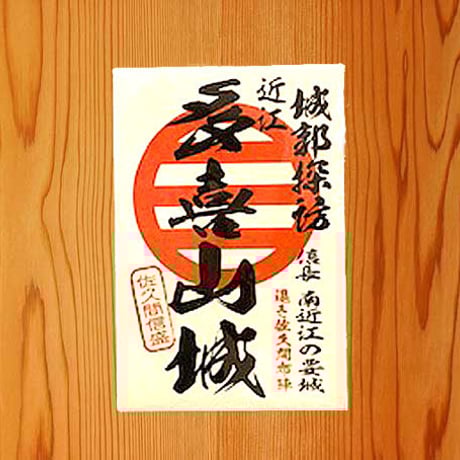 城郭探訪
信長 南近江の要城
退き佐久間布陣
近江
多喜山城
佐久間信盛